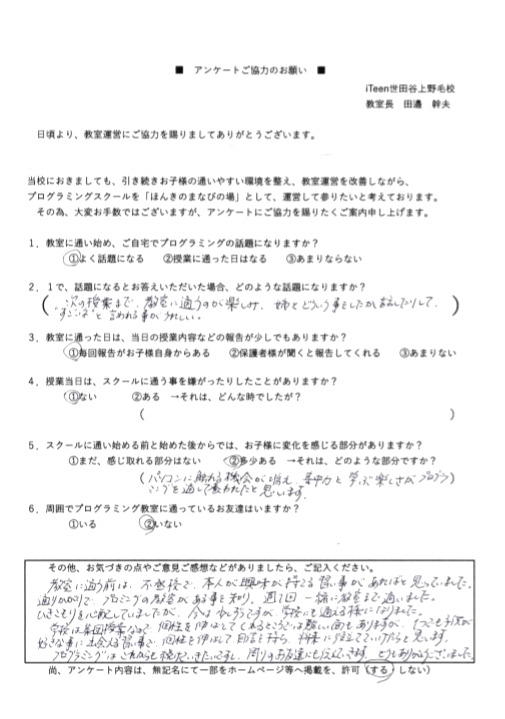 ■ アンケートご協力のお願い ■
iTeen世田谷上野毛校
教室長 田邉 幹夫
日頃より、教室運営にご協力を賜りましてありがとうございます。
当校におきましても、引き続きお子様の通いやすい環境を整え、教室運営を改善しながら、
プログラミングスクールを「ほんきのまなびの場」として、運営して参りたいと考えております。
その為、大変お手数ではございますが、アンケートにご協力を賜りたくご案内申し上げます。
1．教室に通い始め、ご自宅でプログラミングの話題になりますか？
①よく話題になる ②授業に通った日はなる ③あまりならない
2．1で、話題になるとお答えいただいた場合、どのような話題になりますか？
(次の授業まで、教室に通うのが楽しみ、姉とどういう事をしたか
"すごいね"と言われる事がうれしい。)
3．教室に通った日は、当日の授業内容などの報告が少しでもありますか？
①毎回報告がお子様自身からある ②保護者様が聞くと報告してくれる ③あまりない
4．授業当日は、スクールに通う事を嫌がったりしたことがありますか？
①ない ②ある →それは、どんな時でしたか？
( )
5．スクールに通い始める前と始めた後からでは、お子様に変化を感じる部分がありますか？
①まだ、感じ取れる部分はない ②多少ある →それは、どのような部分ですか？
(パソコンに触れる機会が増え、集中力と学ぶ楽しさがプログラ
ミングを通して養われたと思います。
6．周囲でプログラミング教室に通っているお友達はいますか？
①いる ②いない
その他、お気づきの点やご意見ご感想などがありましたら、ご記入ください。
教室に通う前は、不登校で、本人が興味が持てる習い事があればと思っていました。
通りがかりで、プログラミングの教室がある事を知り、週1回一緒に教室まで通いました。
ひきこもりを心配していましたが、今は少しずつですが、学校にも通える様になりました。
学校は集団授業なので、個性を伸ばしてくれるところでは難しい面もありますが、1つでも子供が
好きな事に出会える習い事で、個性を伸ばして自信を持ち、将来に
プログラミングはこれからも続けていきたいですし、周りのお友達にも伝えていきます。どうもありがとうございました。
尚、アンケート内容は、無記名にて一部をホームページ等へ掲載を、許可（する しない）